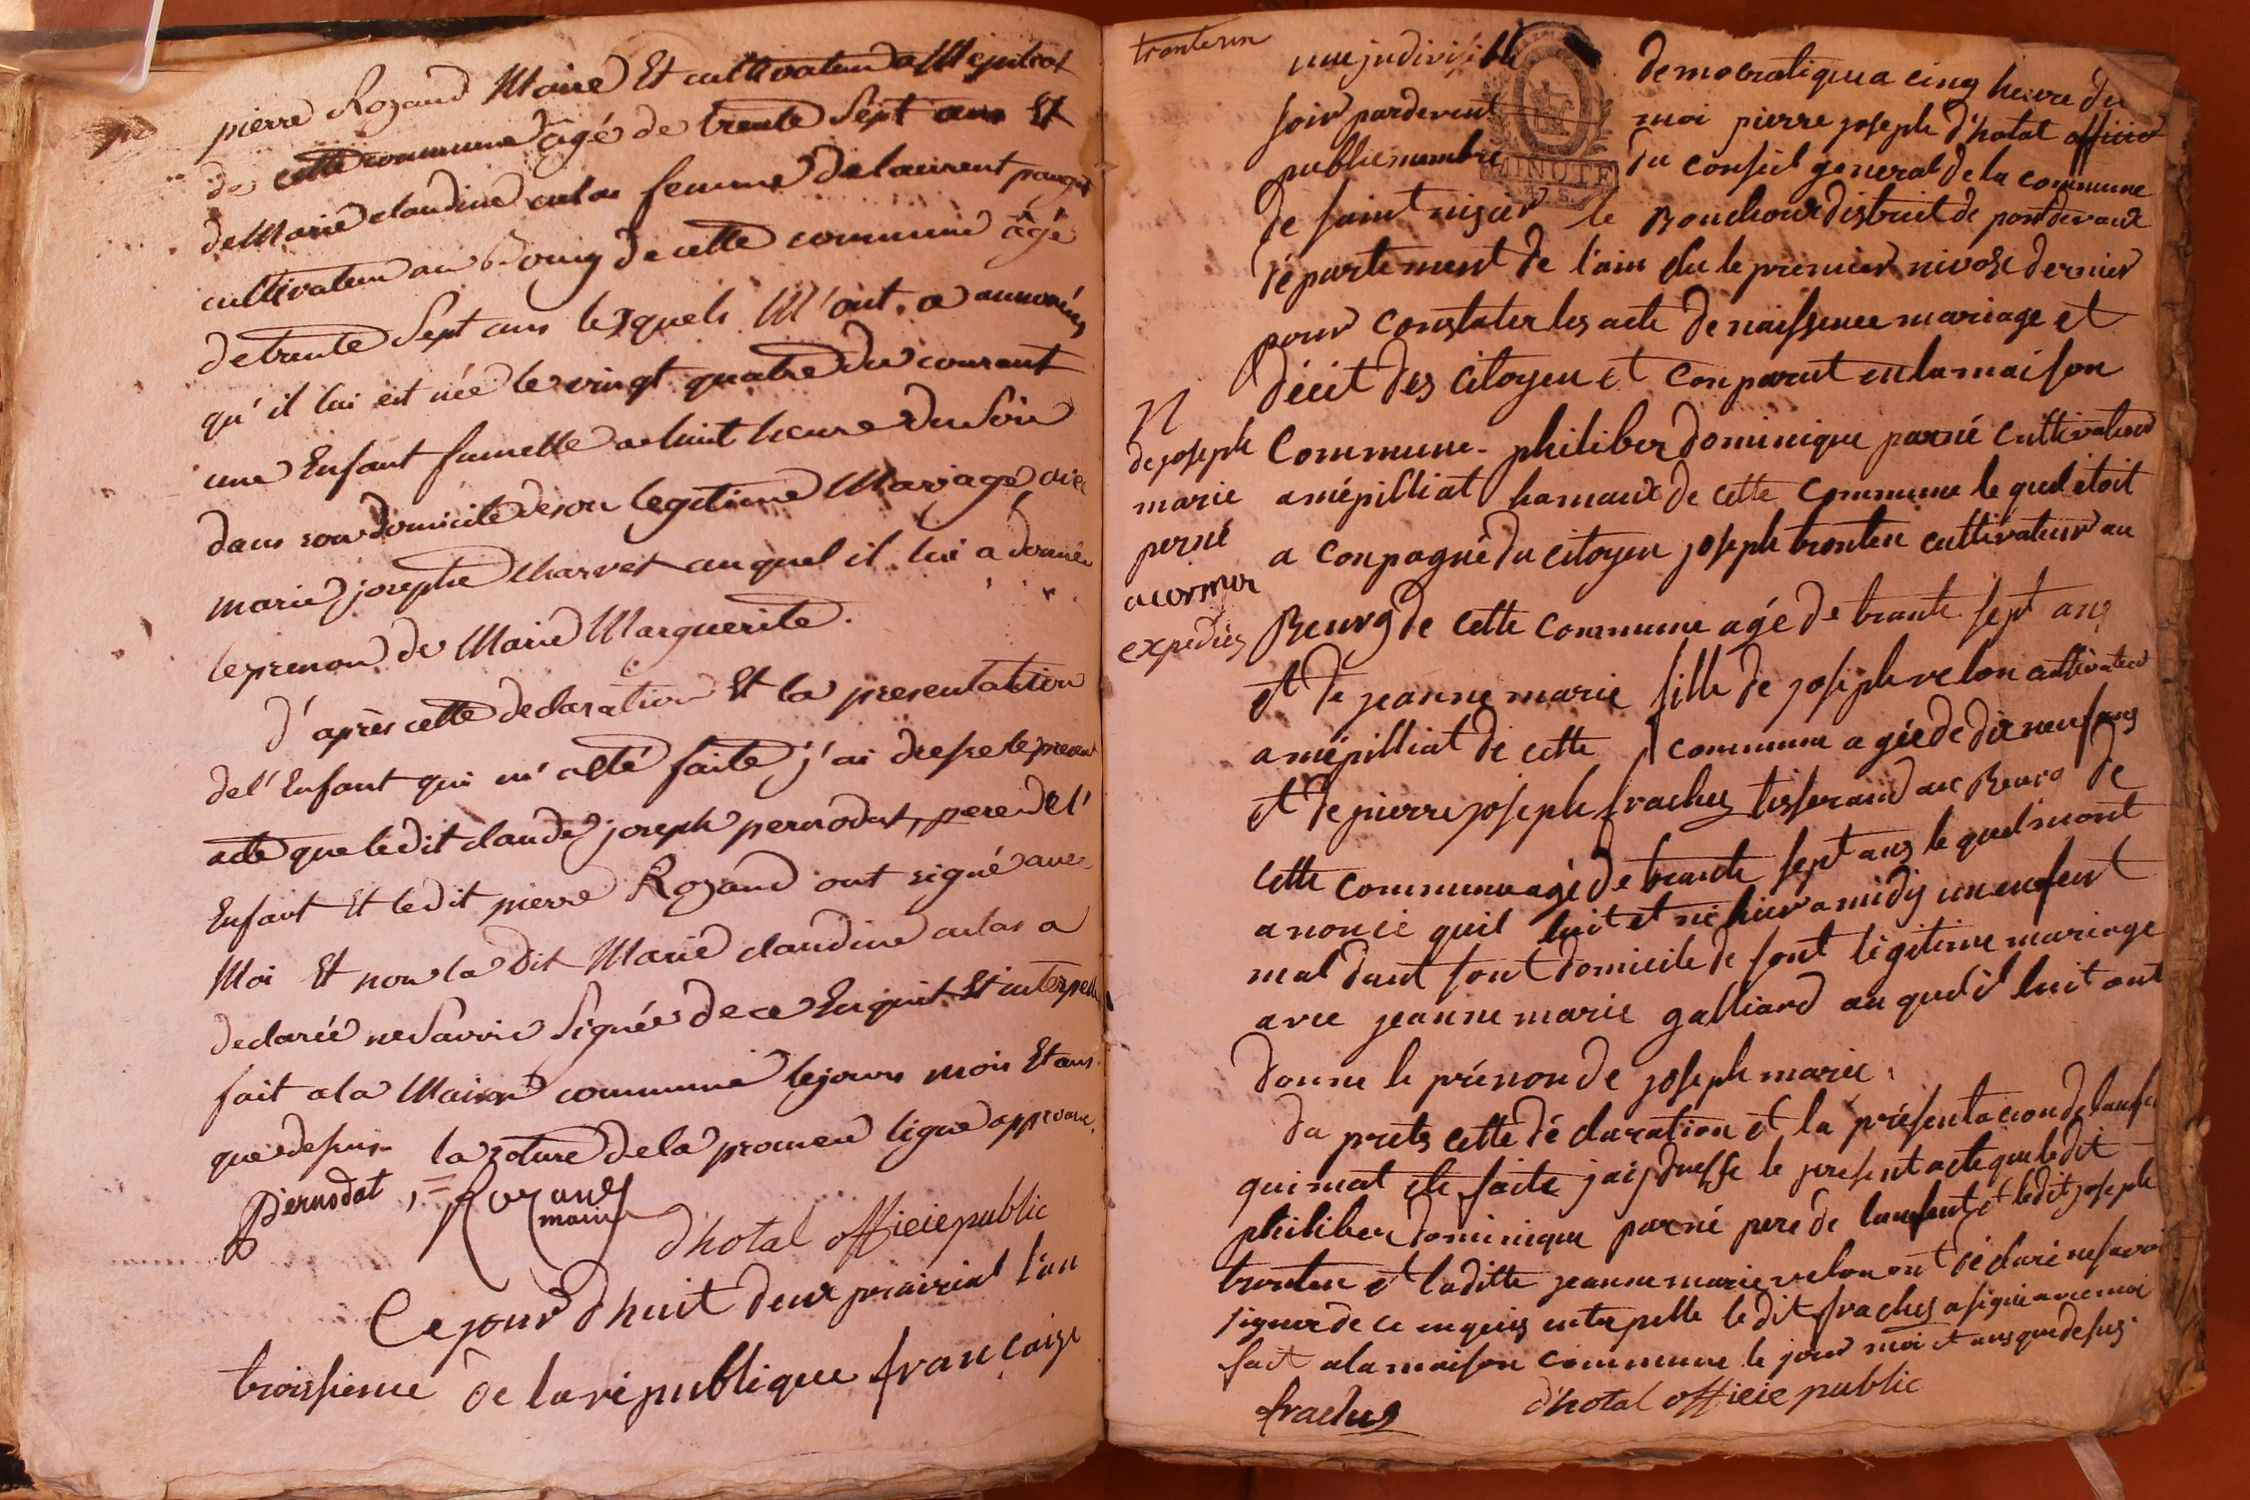 pierre Rozand Maire Et cultivateur a Mepilliat
de cette commune âgé de trente Sept ans Et
de Marie claudine aulas femme de laurent
cultivateur au Bourg de cette commune âgé
de trente Sept ans lesquels M'ont a annoncés
qu'il lui est née le vingt quatre du courant
une Enfant fumelle a huit heure du Soir
dans son domicile de son legitime Mariage avec
marie josephe Charvet auquel il lui a donnée
le prenom de Marie Marguerite.
d'après cette declaration Et la presentation
de l'Enfant qui m'a Eté faite j'ai dresse le present
acte que ledit claude joseph pernodat, pere de l'
Enfant Et ledit pierre Rozand ont signé avec
Moi Et non la dit Marie claudine aulas a
declarée ne Savoir Signée de ce Enquit Et interpelle
fait a la Maison commune le jours mois Et ans
que desus la roture de la premeu ligne approuve.
Pernodat, = Rozand
maire
d'hotal officie public
Ce jourd'huit deux prairial l'an
troissieme de la republique française
trente un
une jndivisible democratique a cinq heure du
soir pardevent moi pierre joseph d'hotal officier
public membre du conseil general de la commune
MINUTE
de saint nisier le Bouchoux distruit de pontdevaux
département de l'ain élu le premier nivose dernier
pour constater les acte de naissence mariage et
décét des citoyen et conparut en la maison
N
de joseph
marie
perné
a cormor
expediés
Commune - philiber dominique parné cultivateur
a mépilliat hamaux de cette commune le quel étoit
a conpagné du citoyen joseph tronten cultivateur au
Beurg de cette commune agé de trante sept ans
et de jeanne marie fille de joseph velon cultivateur
a mépilliat de cette commune a gée de dix neuf ans
et de pierre joseph frachez tisserand au Beurg de
cette commune agé de trante sept ans le quel mont
anoncé quil luit et né hier a midÿ un enfent
mal dant sont domicile de sont légitime mariage
avec jeanne marie galliard au quel il luit ont
donne le prénon de joseph marie.
da prets cette dé claration et la présentacion de lanfen
qui mat éte faite jaij dresse le present acte que ledit
philiber dominique parné pere de lanfent et ledit joseph
tronten et la ditte jeanne marie velon ont déclaré ne savoir
signer de ce enquis enterpelle le dit frachez a signé avec moi
fait a la maison commune le jour moi et ans que desus.
frachez d'hotal officie public